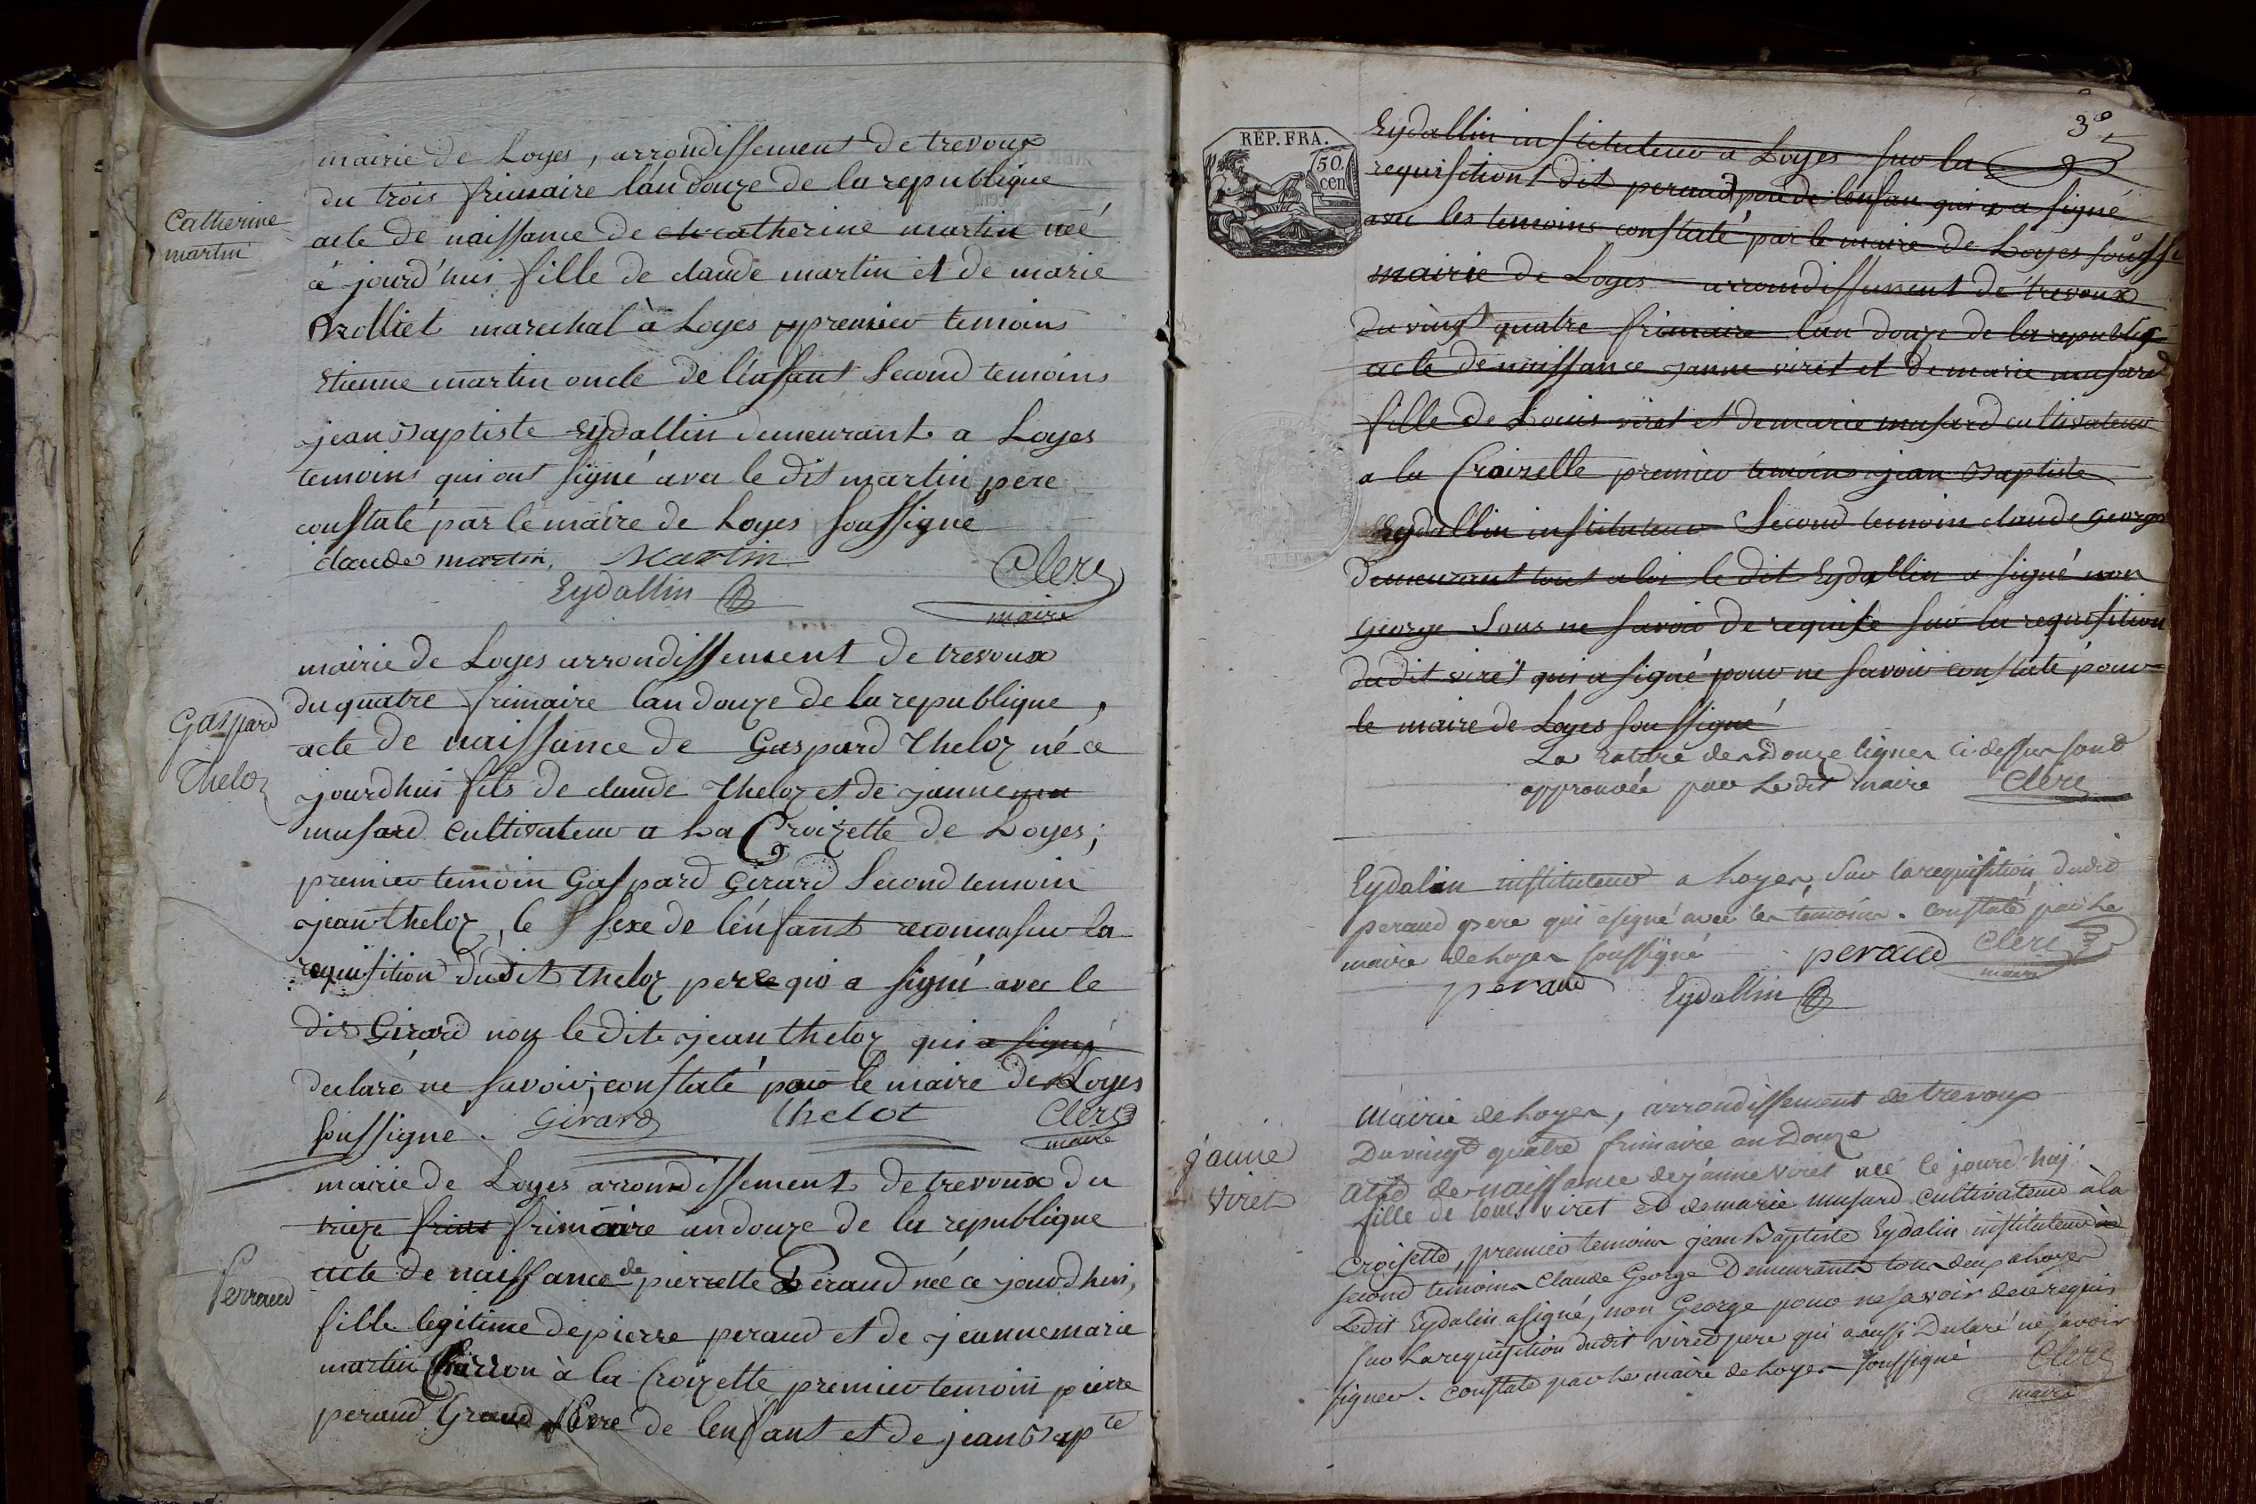 mairie de Loyes, arrondissement de trevoux
du trois frimaire l'an douze de la republique
Catherine
martin
acte de naissance de catherine martin née
ce jourd'hui fille de claude martin et de marie
Brolliet marechal à Loyes premier temoins
Etienne martin oncle de l'enfant second temoins
jean Baptiste Eydallin demeurant a Loyes
temoins qui ont signé avec le dit martin pere
constaté par le maire de Loyes soussigné
claude martin, Martin Clerc
Eydallin maire
mairie de Loyes arrondissement de trevoux
du quatre frimaire l'an douze de la republique,
Gaspard
Theloz
acte de naissance de Gaspard Theloz né ce
jourdhui fils de claude Theloz et de janne
musard cultivateur a La Croizette de Loyes;
premier temoin Gaspard Girard second temoin
jean theloz, le sexe de l'énfant reconnu sur la
requisition dudit theloz pere qui a signé avec le
dit Girard non le dite jean theloz qui a signé
declaré ne savoir; constaté par le maire de Loyes
soussigne. Girard thelot Clerc
maire
mairie de Loyes arrondissement de trevoux du
treize frimaire an douze de la republique
Perraud
acte de naissance de pierrette Peraud née ce jourdhui,
fille legitime de pierre peraud et de jeanne marie
martin Charron à la Croizette premier temoin pierre
peraud Grand Pere de lenfant et de jean Bapte
REP. FRA.
50
cen
Eydallin instituteur a Loyes sur la
requisition dit peraud pere de lénfan qui a signé
avec les temoins constaté par le maire de Loyes soussi
mairie de Loyes arrondissement de trevoux
du vingt quatre frimaire l'an douze de la republiq
acte de naissance janne viret et de marie musard
fille de Louis viret et de marie musard cultivateur
a la Croizette premier temoins jean Baptiste
Eydallin instituteur second temoin claude George
demeurant tout a loi le dit Eydallin a signé non
George sous ne savoir de requise sur la requisition
dudit viret qui a signé pour ne savoir constaté pour
le maire de Loyes soussigné
La rature des douze lignes ci dessus sond
approuvée par Ledit maire Clerc
Eydalin instituteur a Loyes, sur la requisition dudit
peraud pere qui a signé avec les temoins. constaté par Le
maire de Loyes soussigné peraud Clerc
maire
peraud Eydallin
Mairie de Loyes, arrondissement de trevoux
Du vingt quatre frimaire an Douze
janne
Viret
acte de naissance de janne viret née le jourd'huj
fille de louis viret et de marie musard cultivateur à la
Croisette, premier temoins jean Baptiste Eydalin instituteur
second temoins Claude George Demeurants tous deux a Loyes
Ledit Eydalin a signé, non George pour ne savoir de ce requis
sur La requisition dudit viret pere qui a aussi Declaré ne savoir
signer. constaté par Le maire de Loyes soussigné Clerc
maire